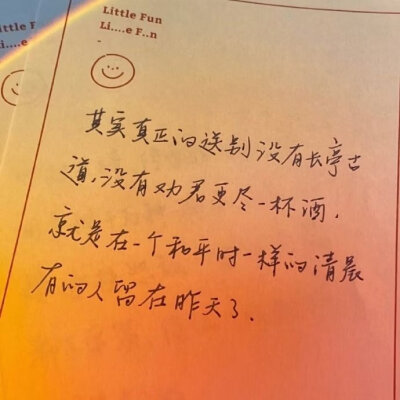 Little Fun
Li....e F..n
-
Little F
i....e
其实真正的送别没有长亭古
道,没有劝君更尽一杯酒,
就是在一个和平时一样的清晨
有的人留在昨天了.